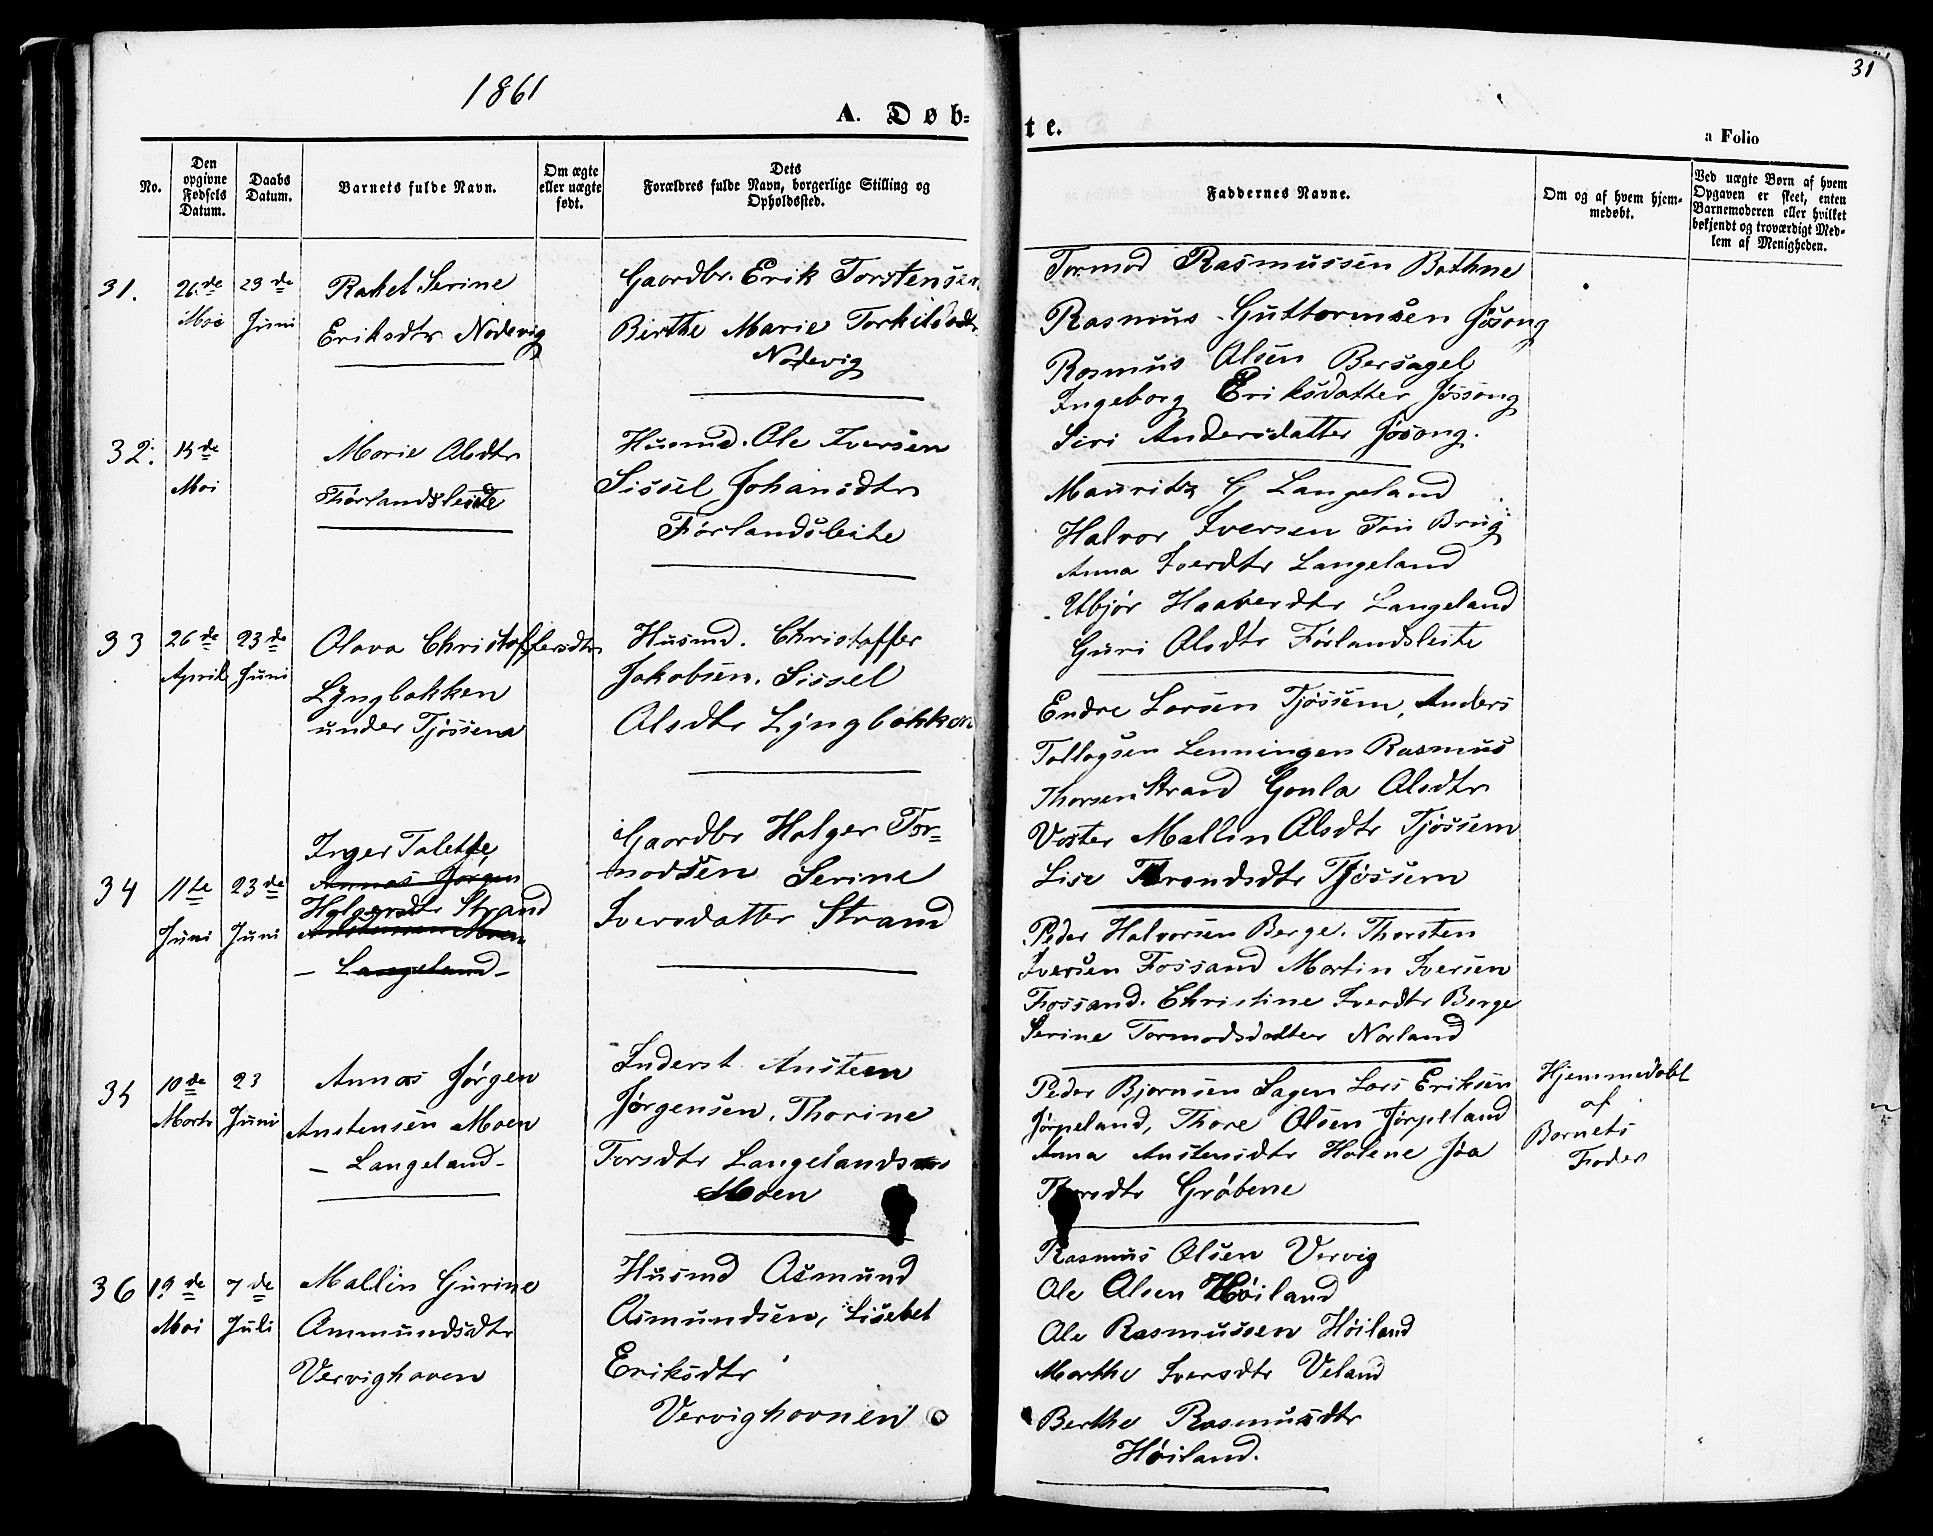 1861
31
A. Døb-
te.
a Folio
No.
Den
opgivne
Fødsels
Datum.
Daabs
Datum.
Barnets fulde Navn.
Om ægte
eller uægte
født.
Dets
Forældres fulde Navn, borgerlige Stilling og
Opholdssted.
Faddernes Navne.
Om og af hvem hjem-
medøbt.
Ved uægte Børn af hvem
Opgaven er skeet, enten
Barnemoderen eller hvilket
bekjendt og troværdigt Med-
lem af Menigheden.
31.
26de
Mai
23de
Juni
Rakel Serine
Eriksdtr Nodevig
Gaardbr. Erik Torstensen
Birthe Marie Torkilsdtr
Nodevig
Tormod Rasmussen Bathne
Rasmus Guttormsen Jøsang
Rasmus Olsen Bersagel
Ingeborg Eriksdatter Jøssang
Siri Andersdatter Jøsang.
32.
Mai
Marie Olsdtr
Førlandsleite
Husmd. Ole Iversen
Sissel Johansdtr
Førlandsleite
Mauritz G Langeland
Halvor Iversen Brug
Anna Iverdtr Langeland
Haaverdtr Langeland
Guri Olsdtr Førlandsleite
33
26de
April
23de
Juni
Olava Christoffersdtr
Lyngbakken
under Tjøssem
Husmd. Christoffer
Jakobsen. Sissel
Olsdtr Lyngbakken
Endre Larsen Tjøssem, Anders
Tollagsen Lenningen Rasmus
Thorsen Strand Gonla Olsdtr
Voster Mallin Olsdtr Tjøssem
Lise Trondsdtr Tjøssem
34
11te
Juni
23de
Juni
Inger Talette,
Annas Jørgen
Holgersdtr Strand
Anstensen Moen
- Langeland -
Gaardbr Holger Tor-
modsen Serine
Iversdatter Strand
Peder Halvorsen Berge. Thorsten
Iversen Fossand Martin Iversen
Fossand. Christine Iverdtr Berge
Serine Tormodsdatter Norland
35
10de
Marts
23
Juni
Annas Jørgen
Anstensen Moen
- Langeland -
Inderst Ansteen
Jørgensen. Thorine
Torsdtr Langelands
Moen
Peder Bjørnsen Sagen Lars Eriksen
Jørpeland, Thore Olsen Jørpeland
Anna Anstensdtr Holene Jøa
Thorsdtr Grøbene
Hjemmedøbt
af
Barnets
Fader
36
19de
Mai
7de
Juli
Mallin Gurine
Ammundsdtr
Vervighaven
Husmd Asmund
Asmundsen, Lisebet
Eriksdtr
Vervighovnen
Rasmus Olsen Vervig
Ole Olsen Høiland
Ole Rasmussen Høiland
Marthe Iversdtr Veland
Berthe Rasmusdtr
Høiland.